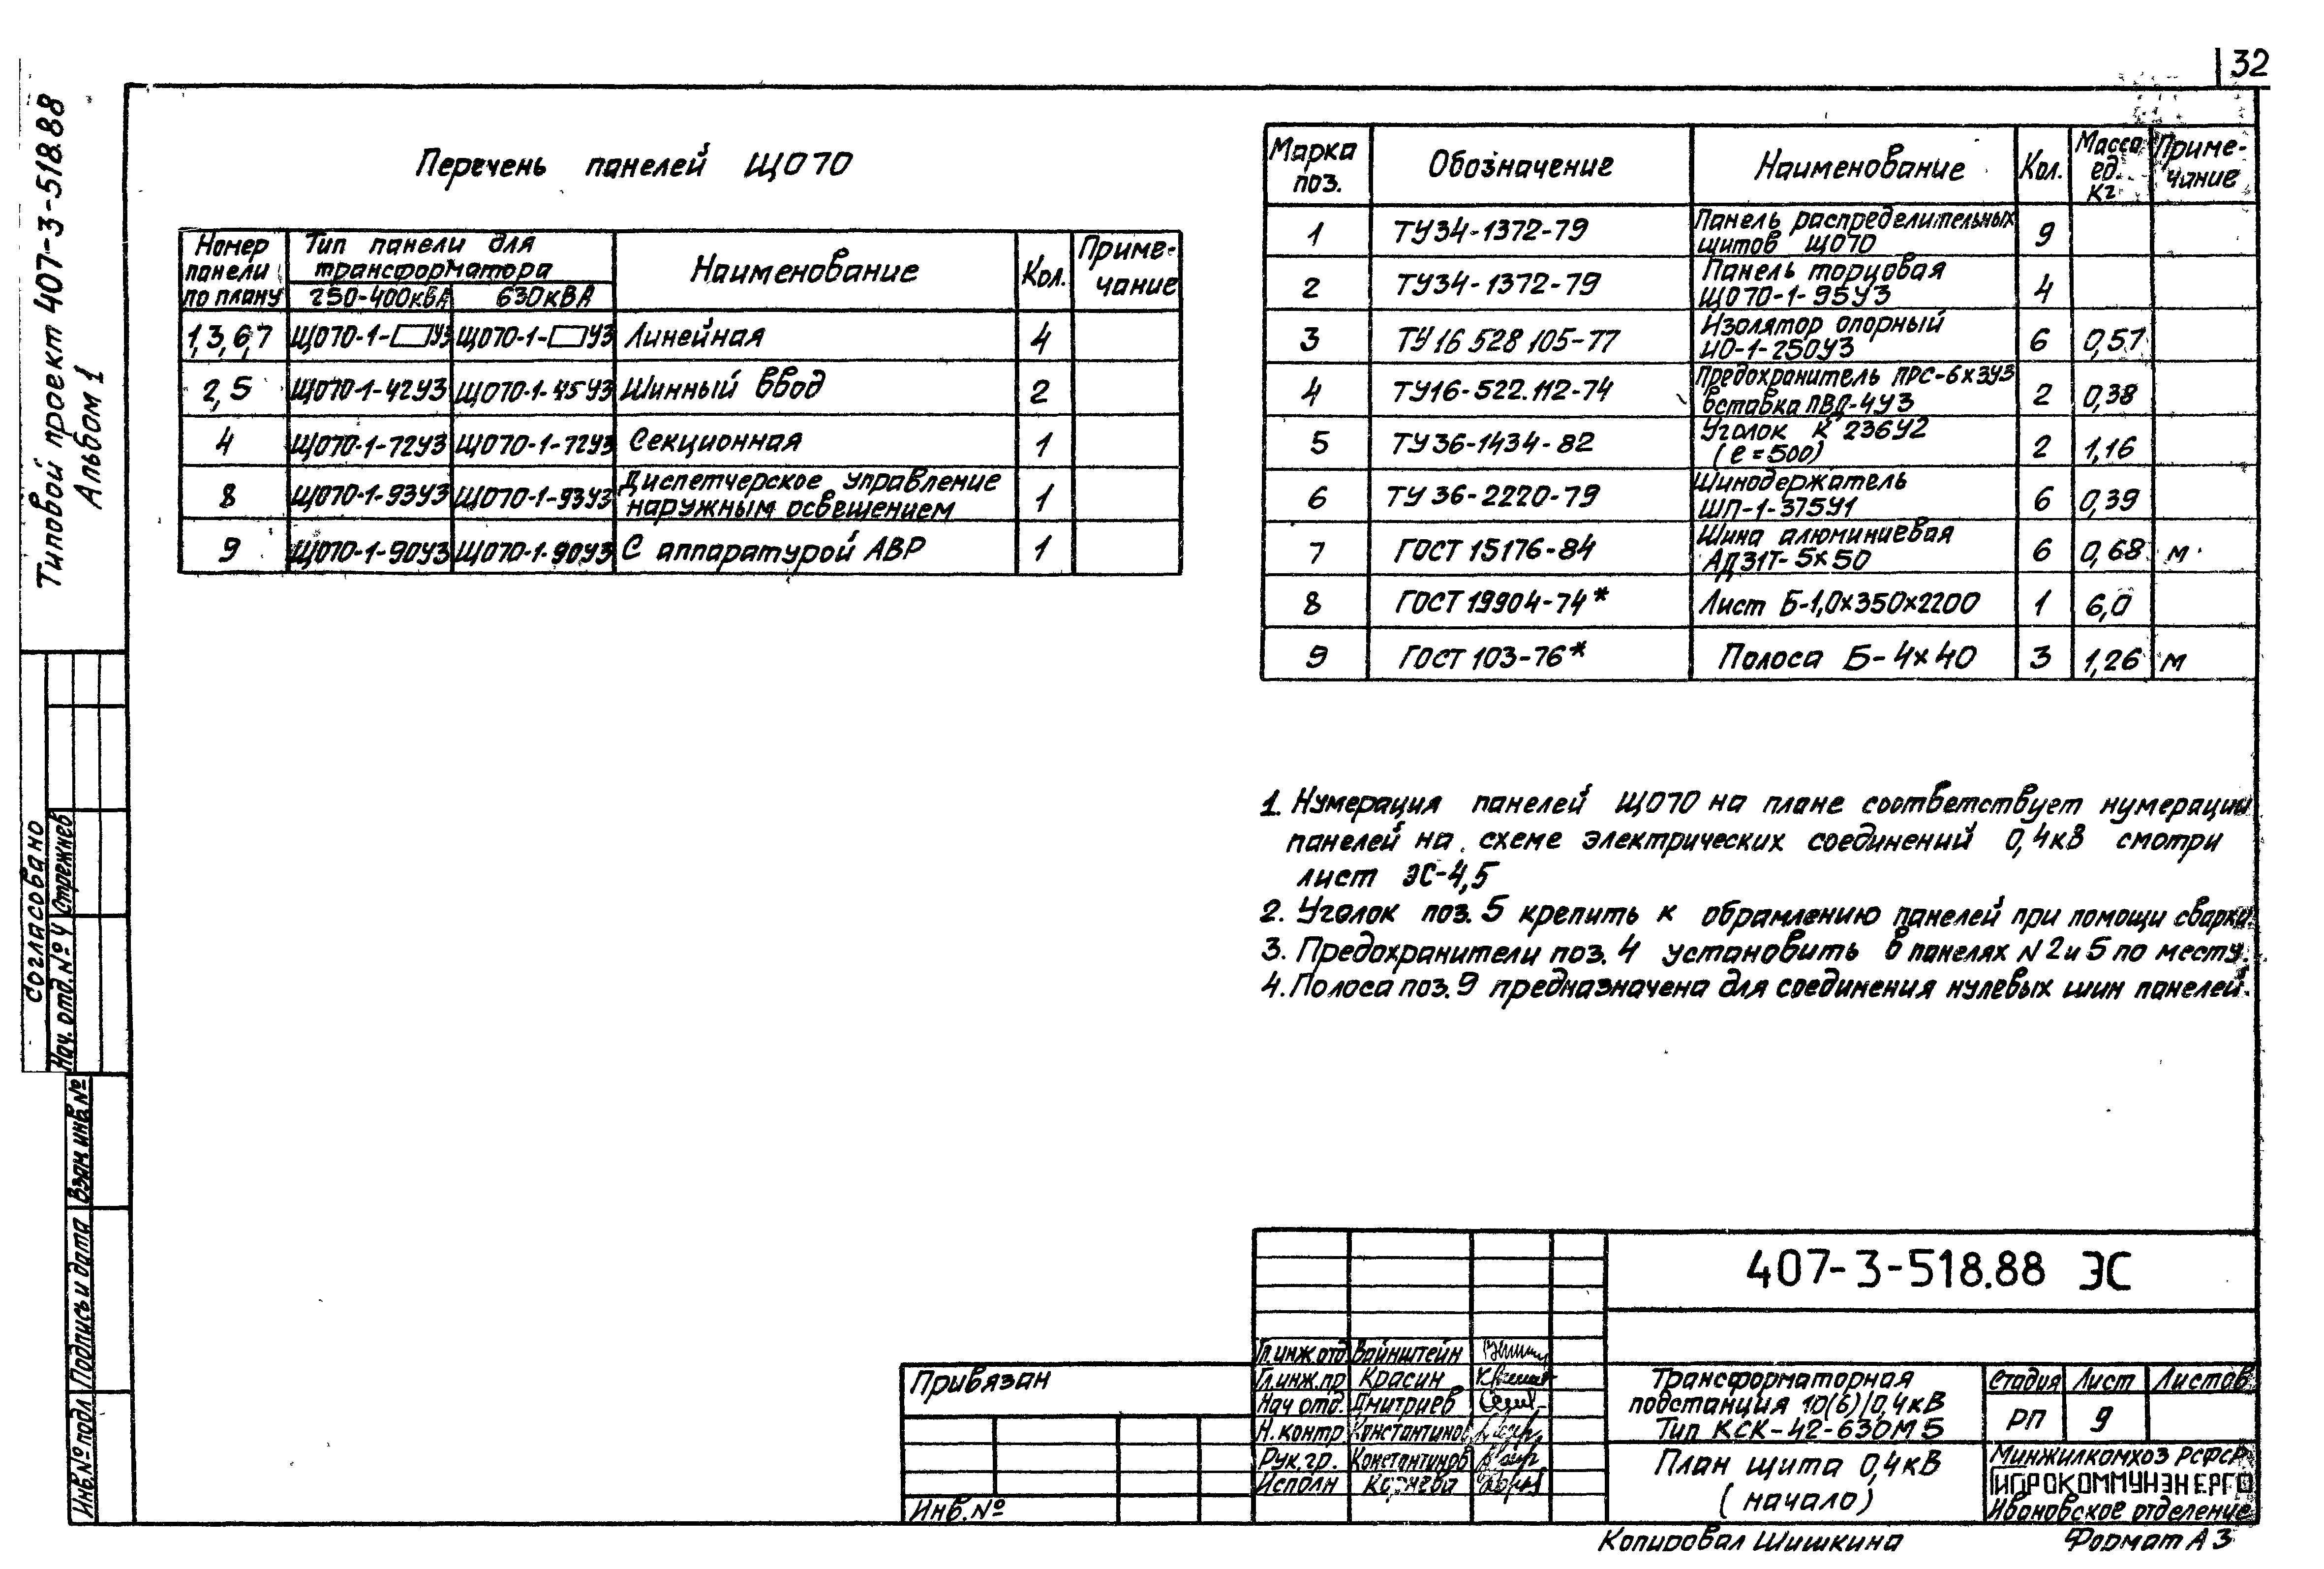 32
Типовой проект 407-3-518.88
Альбом 1
Перечень панелей ЩО70
Номер панели по плану
Тип панели для трансформатора
250-400кВА
630кВА
Наименование
Кол.
Приме-чание
1,3,6,7 ЩО70-1-□У3 ЩО70-1-□У3 Линейная 4
2,5 ЩО70-1-42У3 ЩО70-1-45У3 Шинный ввод 2
4 ЩО70-1-72У3 ЩО70-1-72У3 Секционная 1
8 ЩО70-1-93У3 ЩО70-1-93У3 Диспетчерское управление
наружным освещением 1
9 ЩО70-1-90У3 ЩО70-1-90У3 С аппаратурой АВР 1
Марка поз.
Обозначение
Наименование
Кол.
Масса ед. кг
Приме-чание
1 ТУ34-1372-79 Панель распределительных
щитов ЩО70 9
2 ТУ34-1372-79 Панель торцовая
ЩО70-1-95У3 4
3 ТУ16 528 105-77 Изолятор опорный
ИО-1-250У3 6 0,57
4 ТУ16-522.112-74 Предохранитель ПРС-6х3У3
вставка ПВД-4У3 2 0,38
5 ТУ36-1434-82 Уголок К 236У2
(е=500) 2 1,16
6 ТУ36-2220-79 Шинодержатель
ШП-1-375У1 6 0,39
7 ГОСТ 15176-84 Шина алюминиевая
АД31Т-5х50 6 0,68 м
8 ГОСТ 19904-74* Лист Б-1,0х350х2200 1 6,0
9 ГОСТ 103-76* Полоса Б-4х40 3 1,26 м
1. Нумерация панелей ЩО70 на плане соответствует нумерации
панелей на схеме электрических соединений 0,4кВ смотри
лист ЭС-4,5
2. Уголок поз. 5 крепить к обрамлению панелей при помощи сварки.
3. Предохранители поз. 4 установить в панелях N 2 и 5 по месту.
4. Полоса поз. 9 предназначена для соединения нулевых шин панелей.
Согласовано
Нач. отд. №4 Стрежнев
Взам инв.№
Подпись и дата
Инв.№ подл
Привязан
Инв.№
407-3-518.88 ЭС
Гл.инж.отд Вайнштейн
Гл.инж.пр Красин
Нач отд. Дмитриев
Н.контр Константинов
Рук.гр. Константинов
Исполн Корнева
Трансформаторная
подстанция 10(6)/0,4кВ
Тип КСК-42-630М5
Стадия Лист Листов
РП 9
План щита 0,4кВ
(начало)
Минжилкомхоз РСФСР
ГИПРОКОММУНЭНЕРГО
Ивановское отделение
Копировал Шишкина
Формат А3